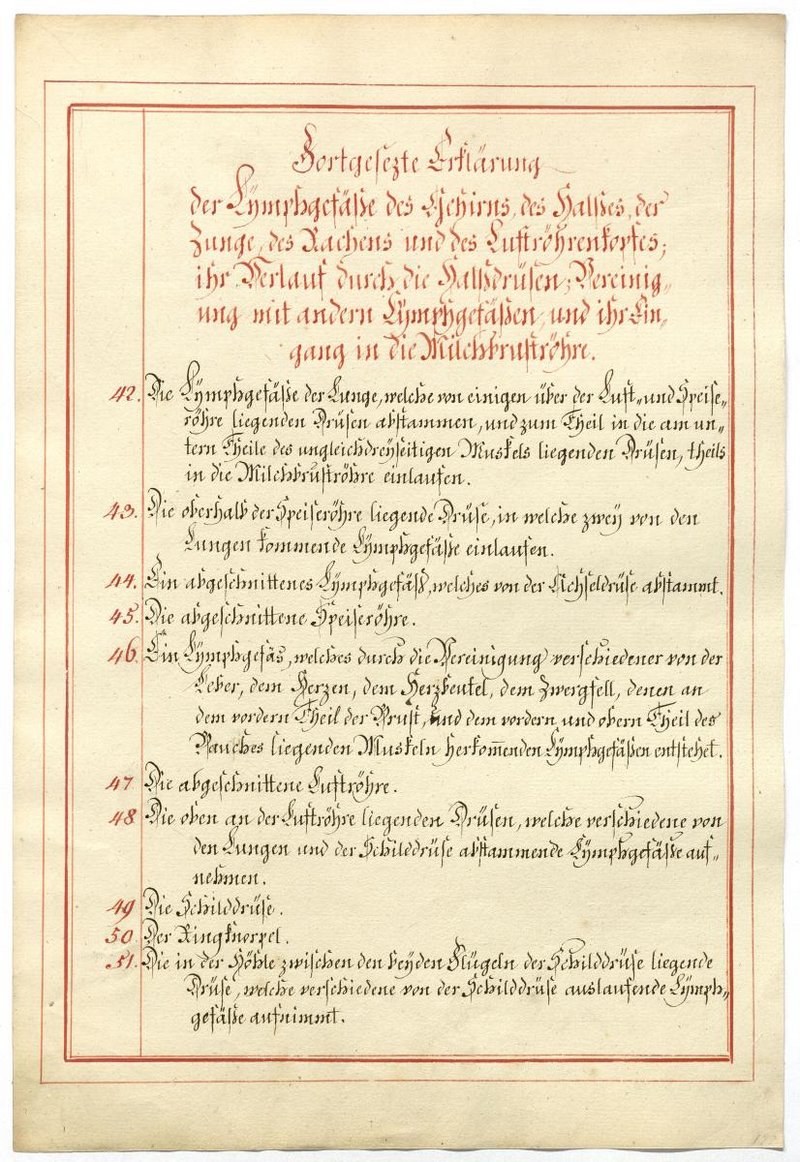 Fortgesezte Erklärung
der Lÿmphgefäße des Gehirns, des Halßes, der
Zunge, des Rachens und des Luftröhrenkopfes;
ihr Verlauf durch die Halßdrüsen; Vereinig„
ung mit andern Lÿmphgefäßen, und ihr Ein„
gang in die Milchbruströhre.
42. Die Lÿmphgefäße der Lunge, welche von einigen über der Luft„ und Speise„
röhre liegenden Drüsen abstammen, und zum Theil in die am un„
tern Theile des ungleichdreÿseitigen Muskels liegenden Drüsen, theils
in die Milchbruströhre einlaufen.
43. Die oberhalb der Speiseröhre liegende Drüse, in welche zweÿ von den
Lungen kommende Lÿmphgefäße einlaufen.
44. Ein abgeschnittenes Lÿmphgefäß, welches von der Achseldrüse abstammt.
45. Die abgeschnittene Speiseröhre.
46. Ein Lÿmphgefäs, welches durch die Vereinigung verschiedener von der
Leber, dem Herzen, dem Herzbeutel, dem Zwergfell, denen an
dem vordern Theil der Brust, und dem vordern und obern Theil des
Bauches liegenden Muskeln herkom̅enden Lÿmphgefäßen entstehet.
47 Die abgeschnittene Luftröhre.
48 Die oben an der Luftröhre liegenden Drüsen, welche verschiedene von
den Lungen und der Schilddrüse abstammende Lÿmphgefäße auf„
nehmen.
49 Die Schilddrüse.
50 Der Ringknorpel.
51. Die in der Höhle zwischen den beÿden Flügeln der Schilddrüse liegende
Drüse, welche verschiedene von der Schilddrüse auslaufende Lÿmph„
gefäße aufnimmt.